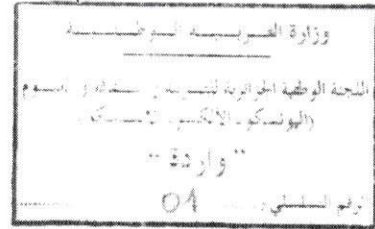 وزارة التربية الوطنية
اللجنة الوطنية الجزائرية للتربية و الثقافة و العلوم
(اليونسكو - الألكسو -
" واردة "
الرقم التسلسلي 01